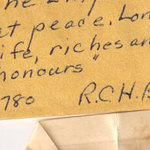 The
at peace, Lon
ife, riches an
honours"
780 R.C.H.B